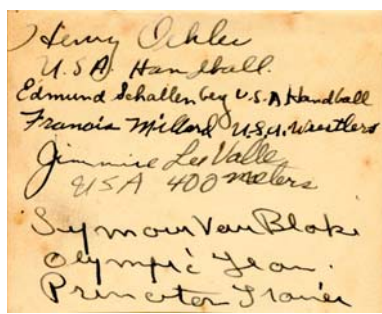 Henry Oehler
U.S.A. Handball.
Edmund Schallenberg U.S.A Handball
Francis Millard U.S.A. Wrestlers
Jimmie LuValle
USA 400 meters
Seymour Van Blake
Olympic Team.
Princeton Trainer